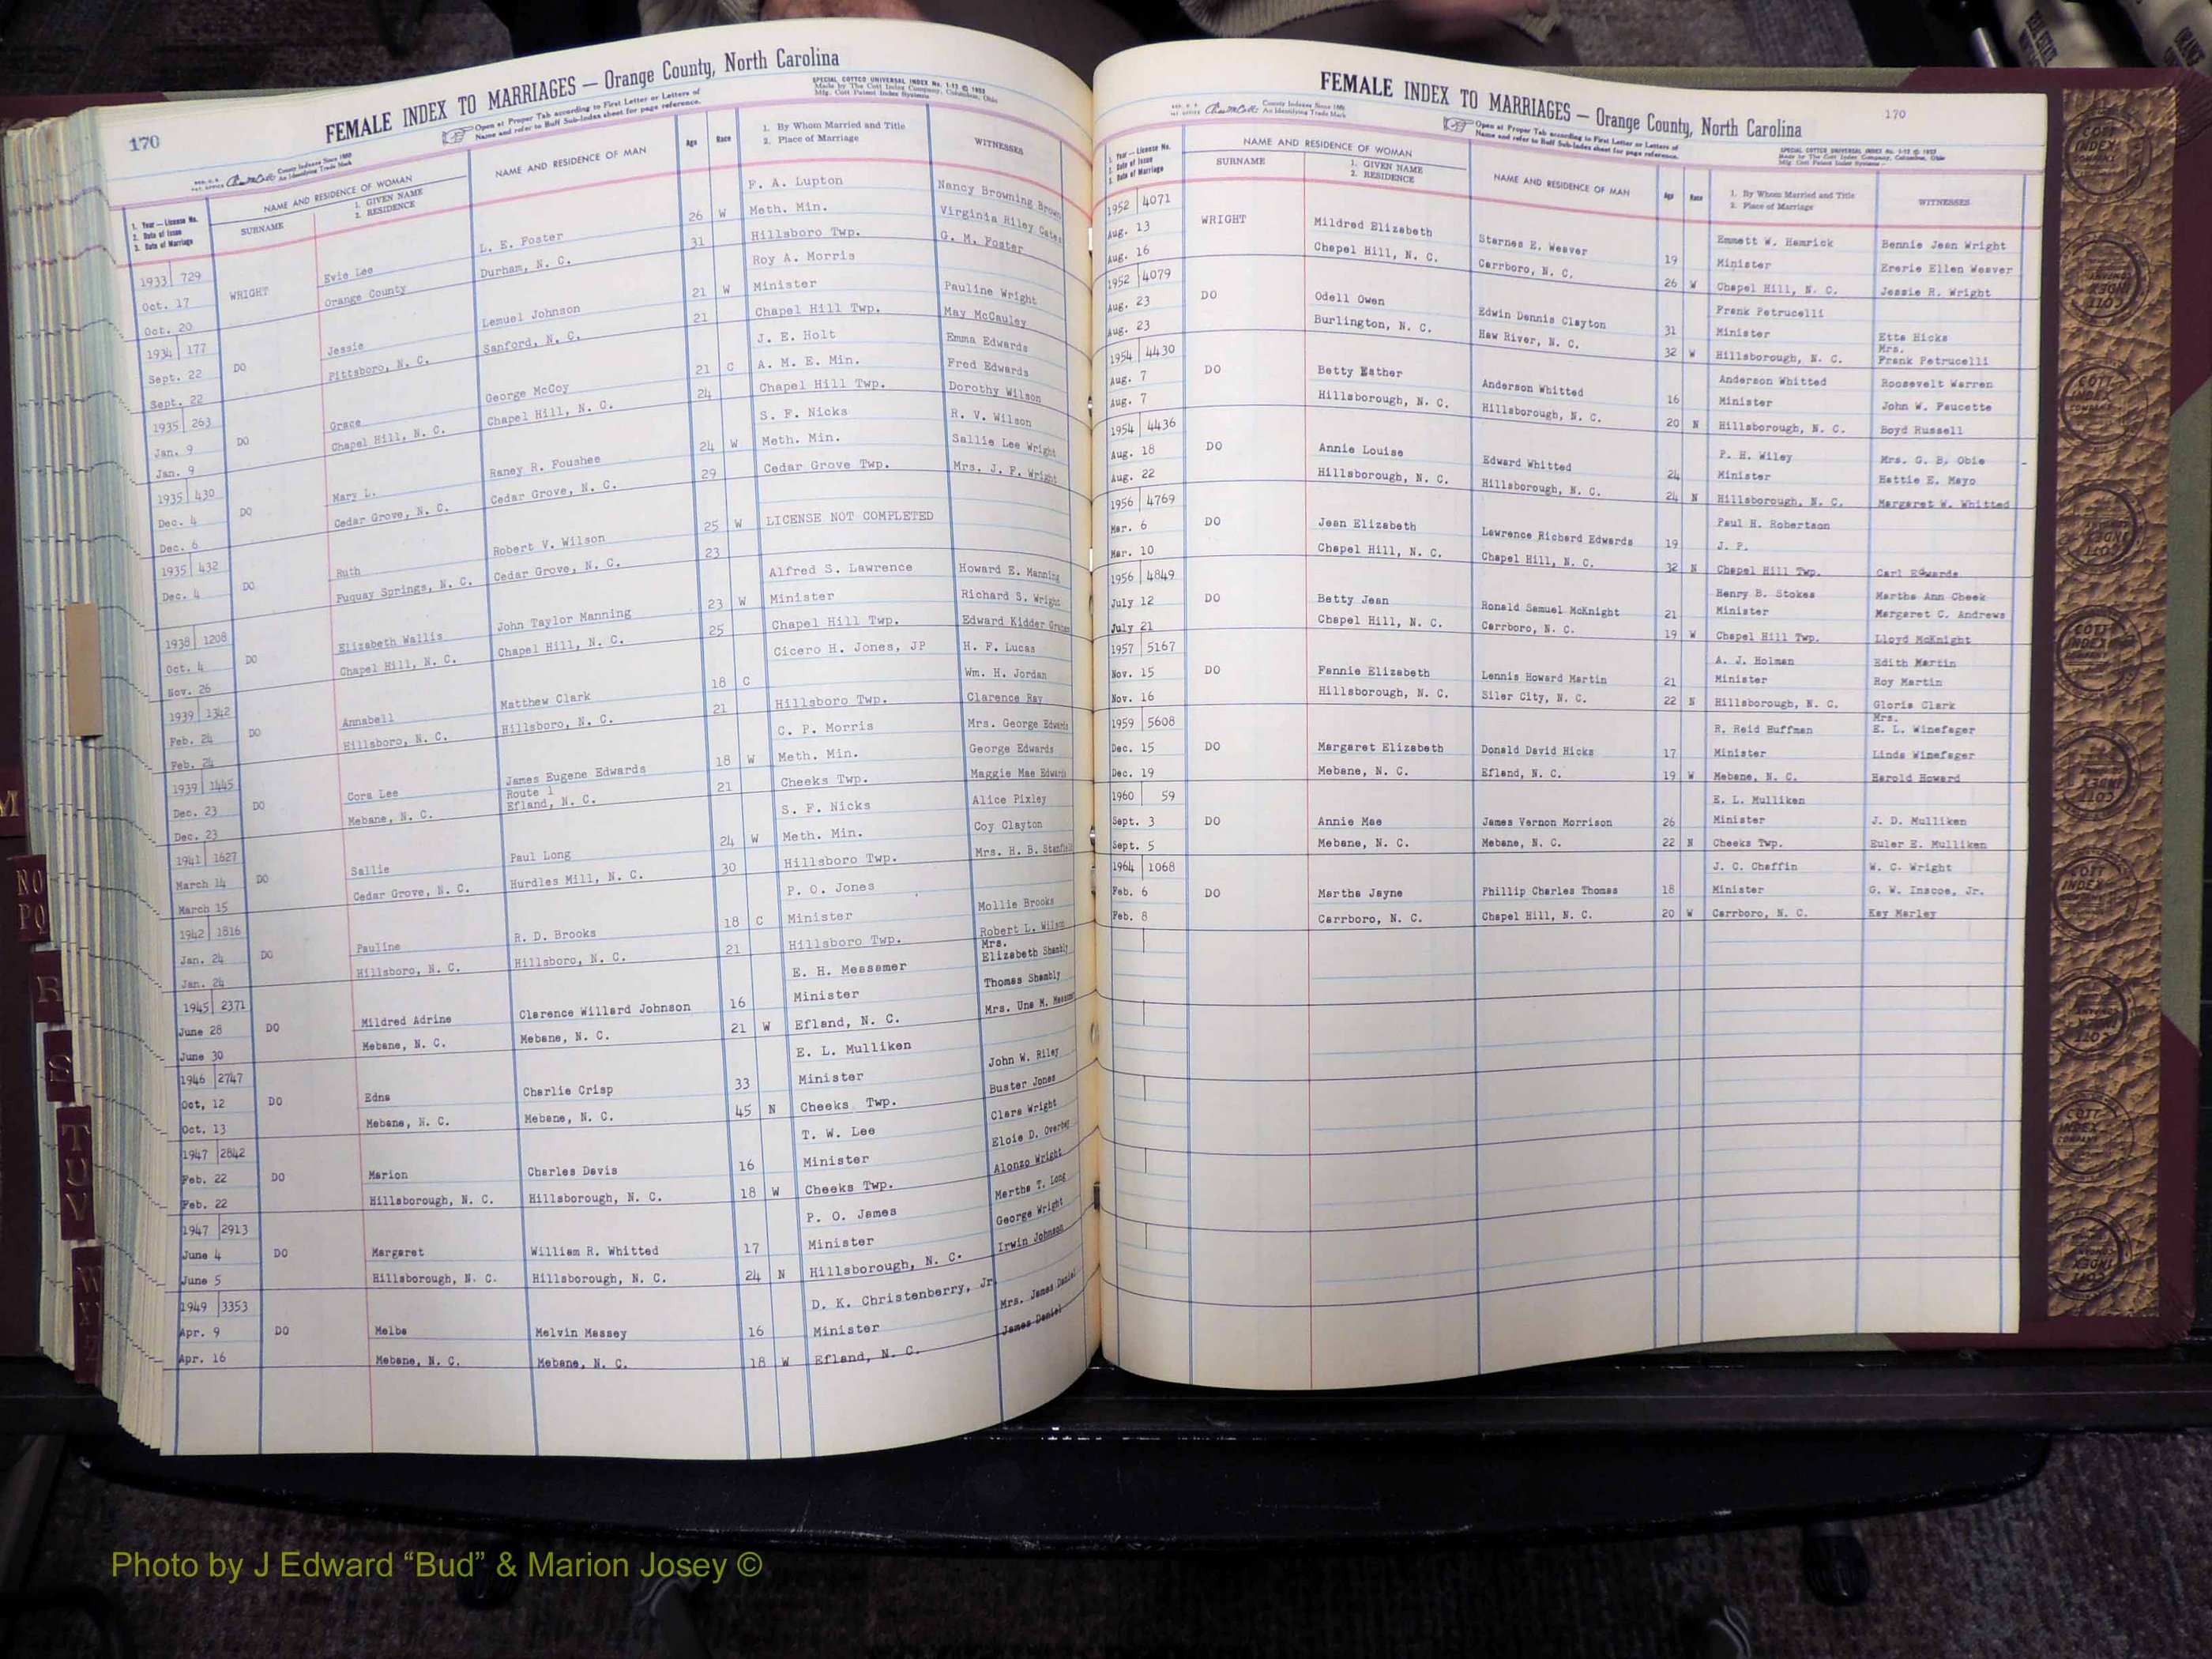 170
FEMALE INDEX TO MARRIAGES — Orange County, North Carolina
Open at Proper Tab according to First Letter or Letters of
Name and refer to Buff Sub-Index sheet for page reference.
SPECIAL COTTCO UNIVERSAL INDEX No. 1-12 © 1933
Made by The Cott Index Company, Columbus, Ohio
Mfg. Cott Patent Index Systems
County Indexes Since 1888
An Identifying Trade Mark
1. Year — License No.
2. Date of Issue
3. Date of Marriage
NAME AND RESIDENCE OF WOMAN
SURNAME
1. GIVEN NAME
2. RESIDENCE
NAME AND RESIDENCE OF MAN
Age
Race
1. By Whom Married and Title
2. Place of Marriage
WITNESSES
1933 729 F. A. Lupton Nancy Browning Brown
Oct. 17 WRIGHT Evie Lee L. E. Foster 26 W Meth. Min. Virginia Riley Gates
Oct. 20 Orange County Durham, N. C. 31 Hillsboro Twp. G. M. Foster
1934 177 Roy A. Morris
Sept. 22 DO Jessie Lemuel Johnson 21 W Minister Pauline Wright
Sept. 22 Pittsboro, N. C. Sanford, N. C. 21 Chapel Hill Twp. May McCauley
1935 263 J. E. Holt Emma Edwards
Jan. 9 DO Grace George McCoy 21 C A. M. E. Min. Fred Edwards
Jan. 9 Chapel Hill, N. C. Chapel Hill, N. C. 24 Chapel Hill Twp. Dorothy Wilson
1935 430 S. F. Nicks R. V. Wilson
Dec. 4 DO Mary L. Raney R. Foushee 24 W Meth. Min. Sallie Lee Wright
Dec. 6 Cedar Grove, N. C. Cedar Grove, N. C. 29 Cedar Grove Twp. Mrs. J. F. Wright
1935 432
Dec. 4 DO Ruth Robert V. Wilson 25 W LICENSE NOT COMPLETED
Fuquay Springs, N. C. Cedar Grove, N. C. 23
1938 1208 Alfred S. Lawrence Howard E. Manning
Oct. 4 DO Elizabeth Wallis John Taylor Manning 23 W Minister Richard S. Wright
Nov. 26 Chapel Hill, N. C. Chapel Hill, N. C. 25 Chapel Hill Twp. Edward Kidder Graham
1939 1342 Cicero H. Jones, JP H. F. Lucas
Feb. 24 DO Annabell Matthew Clark 18 C Wm. H. Jordan
Feb. 24 Hillsboro, N. C. Hillsboro, N. C. 21 Hillsboro Twp. Clarence Ray
1939 1445 C. P. Morris Mrs. George Edwards
Dec. 23 DO Cora Lee James Eugene Edwards 18 W Meth. Min. George Edwards
Route 1
Dec. 23 Mebane, N. C. Efland, N. C. 21 Cheeks Twp. Maggie Mae Edwards
1941 1627 S. F. Nicks Alice Pixley
March 14 DO Sallie Paul Long 24 W Meth. Min. Coy Clayton
March 15 Cedar Grove, N. C. Hurdles Mill, N. C. 30 Hillsboro Twp. Mrs. H. B. Stanfield
1942 1816 P. O. Jones Mollie Brooks
Jan. 24 DO Pauline R. D. Brooks 18 C Minister Robert L. Wilson
Jan. 24 Hillsboro, N. C. Hillsboro, N. C. 21 Hillsboro Twp. Mrs.
Elizabeth Shambly
1945 2371 E. H. Messamer Thomas Shambly
June 28 DO Mildred Adrine Clarence Willard Johnson 16 Minister Mrs. Una M. Messamer
June 30 Mebane, N. C. Mebane, N. C. 21 W Efland, N. C.
1946 2747 E. L. Mulliken John W. Riley
Oct, 12 DO Edna Charlie Crisp 33 Minister Buster Jones
Oct. 13 Mebane, N. C. Mebane, N. C. 45 N Cheeks Twp. Clara Wright
1947 2842 T. W. Lee Eloie D. Overbey
Feb. 22 DO Marion Charles Davis 16 Minister Alonzo Wright
Feb. 22 Hillsborough, N. C. Hillsborough, N. C. 18 W Cheeks Twp. Martha T. Long
1947 2913 P. O. James George Wright
June 4 DO Margaret William R. Whitted 17 Minister Irwin Johnson
June 5 Hillsborough, N. C. Hillsborough, N. C. 24 N Hillsborough, N. C.
1949 3353 D. K. Christenberry, Jr. Mrs. James Daniel
Apr. 9 DO Melba Melvin Massey 16 Minister James Daniel
Apr. 16 Mebane, N. C. Mebane, N. C. 18 W Efland, N. C.
FEMALE INDEX TO MARRIAGES — Orange County, North Carolina
170
County Indexes Since 1888
An Identifying Trade Mark
Open at Proper Tab according to First Letter or Letters of
Name and refer to Buff Sub-Index sheet for page reference.
SPECIAL COTTCO UNIVERSAL INDEX No. 1-12 © 1933
Made by The Cott Index Company, Columbus, Ohio
Mfg. Cott Patent Index Systems
1. Year — License No.
2. Date of Issue
3. Date of Marriage
NAME AND RESIDENCE OF WOMAN
SURNAME
1. GIVEN NAME
2. RESIDENCE
NAME AND RESIDENCE OF MAN
Age
Race
1. By Whom Married and Title
2. Place of Marriage
WITNESSES
1952 4071 Emmett W. Hamrick Bennie Jean Wright
Aug. 13 WRIGHT Mildred Elizabeth Starnes E. Weaver 19 Minister Ererie Ellen Weaver
Aug. 16 Chapel Hill, N. C. Carrboro, N. C. 26 W Chapel Hill, N. C. Jessie R. Wright
1952 4079 Frank Petrucelli
Aug. 23 DO Odell Owen Edwin Dennis Clayton 31 Minister Etta Hicks
Mrs.
Aug. 23 Burlington, N. C. Haw River, N. C. 32 W Hillsborough, N. C. Frank Petrucelli
1954 4430 Anderson Whitted Roosevelt Warren
Aug. 7 DO Betty Esther Anderson Whitted 16 Minister John W. Faucette
Aug. 7 Hillsborough, N. C. Hillsborough, N. C. 20 N Hillsborough, N. C. Boyd Russell
1954 4436 P. H. Wiley Mrs. G. B. Obie
Aug. 18 DO Annie Louise Edward Whitted 24 Minister Hattie E. Mayo
Aug. 22 Hillsborough, N. C. Hillsborough, N. C. 24 N Hillsborough, N. C. Margaret W. Whitted
1956 4769 Paul H. Robertson
Mar. 6 DO Jean Elizabeth Lawrence Richard Edwards 19 J. P.
Mar. 10 Chapel Hill, N. C. Chapel Hill, N. C. 32 N Chapel Hill Twp. Carl Edwards
1956 4849 Henry B. Stokes Martha Ann Cheek
July 12 DO Betty Jean Ronald Samuel McKnight 21 Minister Margaret C. Andrews
July 21 Chapel Hill, N. C. Carrboro, N. C. 19 W Chapel Hill Twp. Lloyd McKnight
1957 5167 A. J. Holman Edith Martin
Nov. 15 DO Fannie Elizabeth Lennis Howard Martin 21 Minister Roy Martin
Nov. 16 Hillsborough, N. C. Siler City, N. C. 22 N Hillsborough, N. C. Gloria Clark
Mrs.
1959 5608 R. Reid Huffman E. L. Winefager
Dec. 15 DO Margaret Elizabeth Donald David Hicks 17 Minister Linda Winefager
Dec. 19 Mebane, N. C. Efland, N. C. 19 W Mebane, N. C. Harold Howard
1960 59 E. L. Mulliken
Sept. 3 DO Annie Mae James Vernon Morrison 26 Minister J. D. Mulliken
Sept. 5 Mebane, N. C. Mebane, N. C. 22 N Cheeks Twp. Euler E. Mulliken
1964 1068 J. C. Chaffin W. C. Wright
Feb. 6 DO Martha Jayne Phillip Charles Thomas 18 Minister G. W. Inscoe, Jr.
Feb. 8 Carrboro, N. C. Chapel Hill, N. C. 20 W Carrboro, N. C. Kay Marley
M
NO
PQ
R
S
T
U
V
W
COTT
INDEX
COMPANY
Photo by J Edward “Bud” & Marion Josey ©